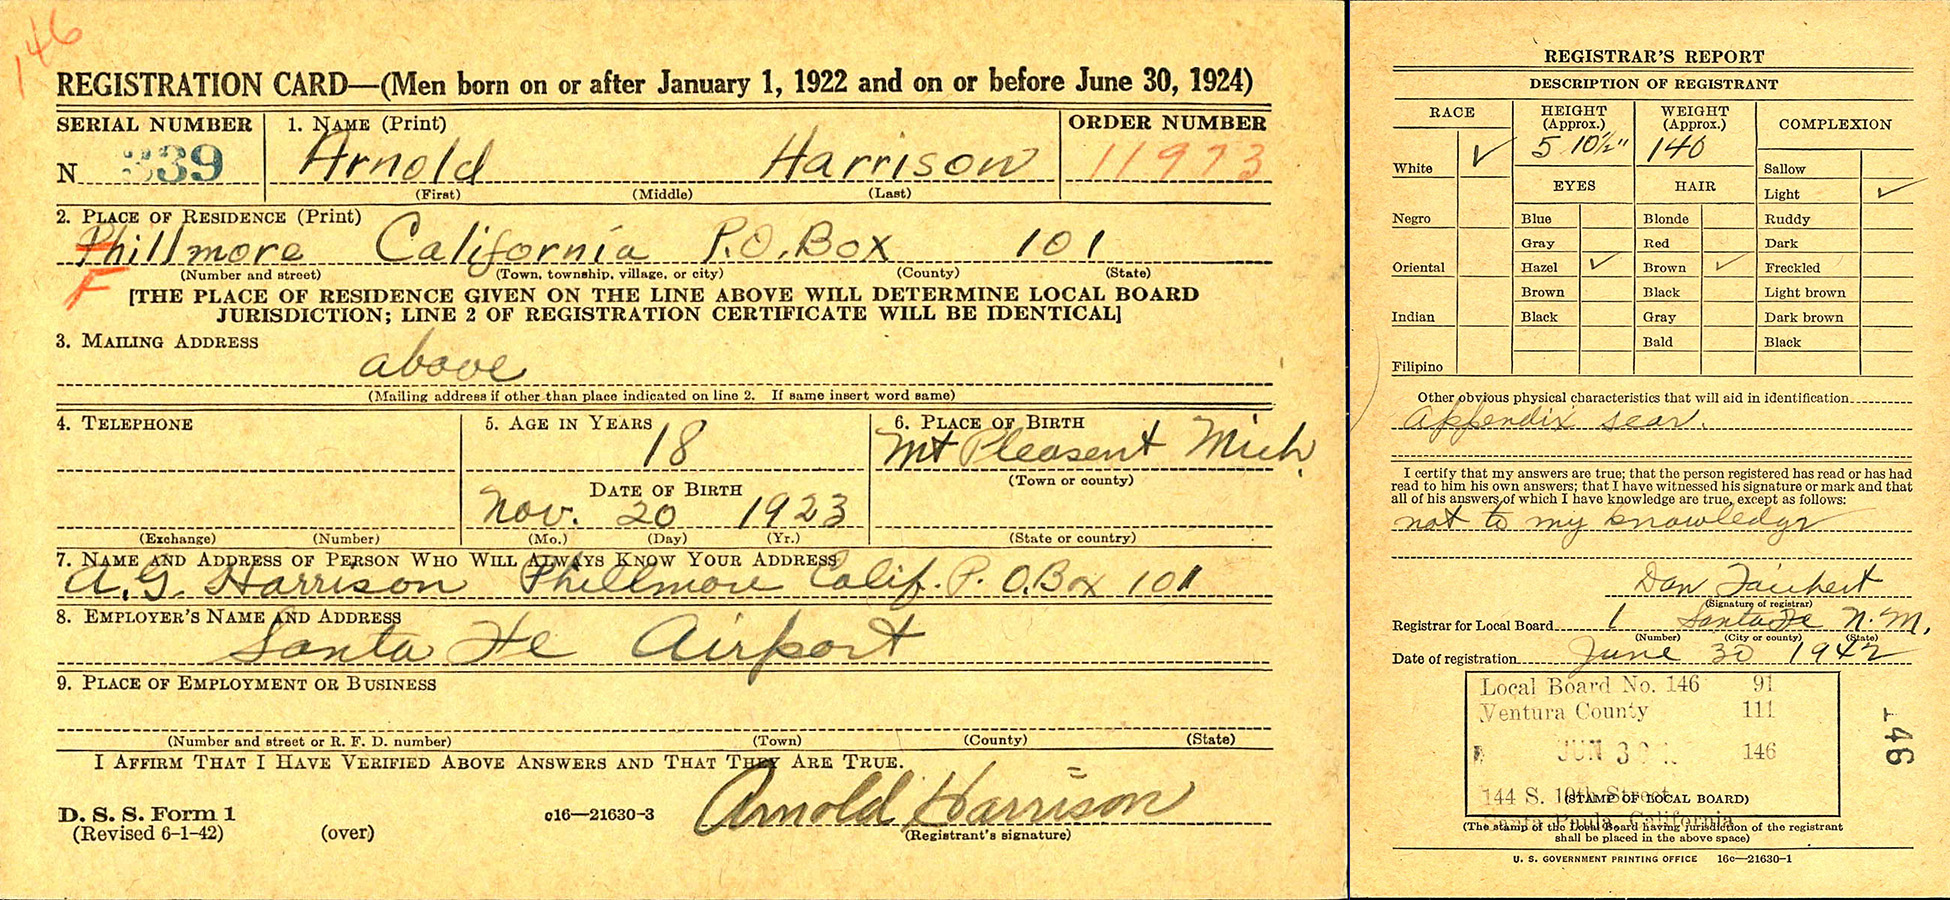 146
REGISTRATION CARD—(Men born on or after January 1, 1922 and on or before June 30, 1924)
SERIAL NUMBER
N 339
1. NAME (Print)
Arnold Harrison
(First) (Middle) (Last)
ORDER NUMBER
11973
2. PLACE OF RESIDENCE (Print)
Phillmore California P.O.Box 101
F
(Number and street) (Town, township, village, or city) (County) (State)
[THE PLACE OF RESIDENCE GIVEN ON THE LINE ABOVE WILL DETERMINE LOCAL BOARD
JURISDICTION; LINE 2 OF REGISTRATION CERTIFICATE WILL BE IDENTICAL]
3. MAILING ADDRESS
above
(Mailing address if other than place indicated on line 2. If same insert word same)
4. TELEPHONE
(Exchange) (Number)
5. AGE IN YEARS
18
DATE OF BIRTH
Nov. 20 1923
(Mo.) (Day) (Yr.)
6. PLACE OF BIRTH
Mt Pleasent Mich.
(Town or county)
(State or country)
7. NAME AND ADDRESS OF PERSON WHO WILL ALWAYS KNOW YOUR ADDRESS
A.G. Harrison Phillmore Calif. P.O.Box 101
8. EMPLOYER'S NAME AND ADDRESS
Santa Fe Airport
9. PLACE OF EMPLOYMENT OR BUSINESS
(Number and street or R. F. D. number) (Town) (County) (State)
I AFFIRM THAT I HAVE VERIFIED ABOVE ANSWERS AND THAT THEY ARE TRUE.
D. S. S. Form 1
(Revised 6-1-42) (over)
c16—21630-3
Arnold Harrison
(Registrant's signature)
REGISTRAR'S REPORT
DESCRIPTION OF REGISTRANT
RACE
White ✓
Negro
Oriental
Indian
Filipino
HEIGHT
(Approx.)
5 10½"
WEIGHT
(Approx.)
140
EYES
Blue
Gray
Hazel ✓
Brown
Black
HAIR
Blonde
Red
Brown ✓
Black
Gray
Bald
COMPLEXION
Sallow
Light ✓
Ruddy
Dark
Freckled
Light brown
Dark brown
Black
Other obvious physical characteristics that will aid in identification
appendix scar.
I certify that my answers are true; that the person registered has read or has had
read to him his own answers; that I have witnessed his signature or mark and that
all of his answers of which I have knowledge are true, except as follows:
not to my knowledge
Dan
(Signature of registrar)
Registrar for Local Board 1 Santa Fe N.M.
(Number) (City or county) (State)
Date of registration June 30 1942
Local Board No. 146 91
Ventura County 111
JUN 30 146
144 S. 10th Street
(STAMP OF LOCAL BOARD)
Santa Paula, California
(The stamp of the Local Board having jurisdiction of the registrant
shall be placed in the above space)
146
U. S. GOVERNMENT PRINTING OFFICE 16c—21630-1